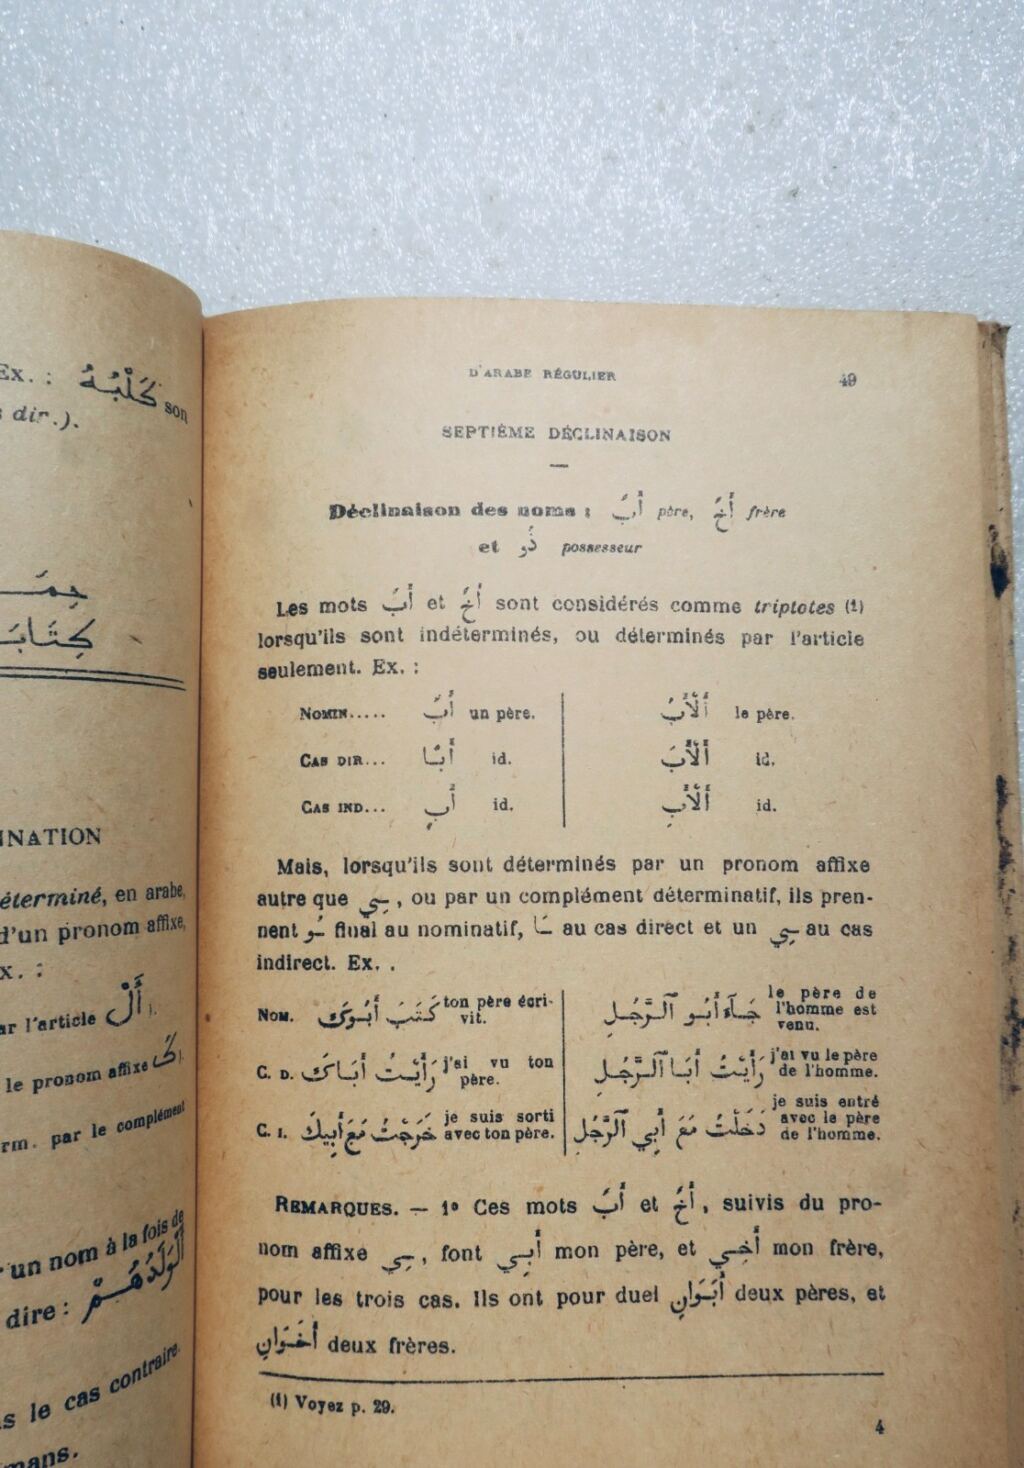 Ex. : كَلْبُهُ son
dir.).
INATION
éterminé, en arabe,
d'un pronom affixe,
x. :
ar l'article أَلْ).
le pronom affixe كَ).
rm. par le complément
un nom à la fois de
dire :
s le cas contraire.
mans.
D'ARABE RÉGULIER 49
SEPTIÈME DÉCLINAISON
Déclinaison des noms : أَبٌ père, أَخٌ frère
et ذُو possesseur
Les mots أَبٌ et أَخٌ sont considérés comme triptotes (1)
lorsqu'ils sont indéterminés, ou déterminés par l'article
seulement. Ex. :
NOMIN..... أَبٌ un père. أَلْأَبُ le père.
CAS DIR... أَبًا id. أَلْأَبَ id.
CAS IND... أَبٍ id. أَلْأَبِ id.
Mais, lorsqu'ils sont déterminés par un pronom affixe
autre que ـِي, ou par un complément déterminatif, ils pren-
nent ـُو final au nominatif, ـَا au cas direct et un ـِي au cas
indirect. Ex. .
NOM. كَتَبَ أَبُوكَ ton père écri-vit. جَآءَ أَبُو ٱلرَّجُلِ le père de l'homme est venu.
C. D. رَأَيْتُ أَبَاكَ j'ai vu ton père. رَأَيْتُ أَبَا ٱلرَّجُلِ j'ai vu le père de l'homme.
C. I. خَرَجْتُ مَعَ أَبِيكَ je suis sorti avec ton père. دَخَلْتُ مَعَ أَبِي ٱلرَّجُلِ je suis entré avec le père de l'homme.
REMARQUES. — 1° Ces mots أَبٌ et أَخٌ, suivis du pro-
nom affixe ـِي, font أَبِي mon père, et أَخِي mon frère,
pour les trois cas. Ils ont pour duel أَبَوَانِ deux pères, et
أَخَوَانِ deux frères.
(1) Voyez p. 29.
4